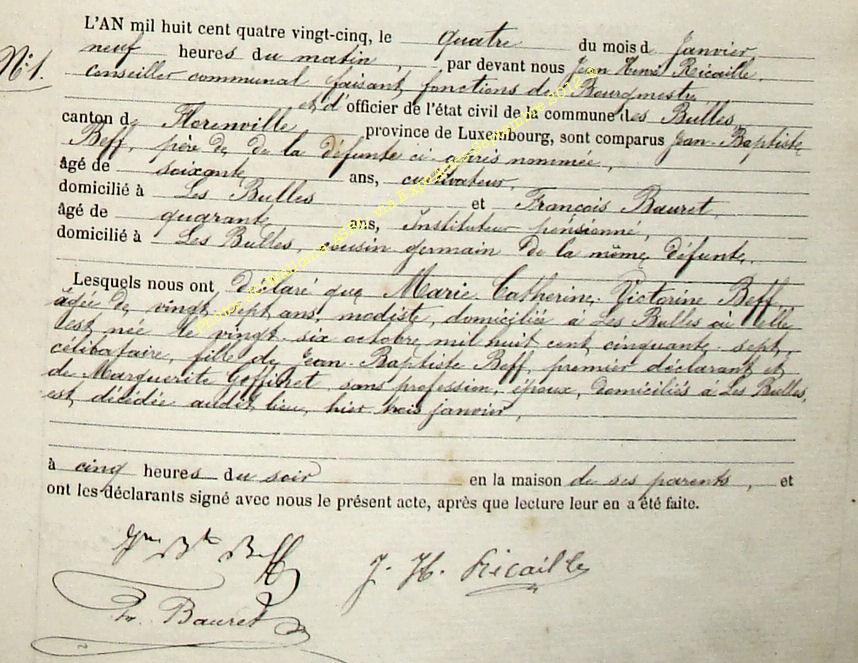 N° 1.
L'AN mil huit cent quatre vingt-cinq, le quatre du mois d Janvier
neuf heures du matin, par devant nous Jean Henri Ricaille,
conseiller communal faisant fonctions de Bourgmestre
et d'officier de l'état civil de la commune des Bulles,
canton de Florenville province de Luxembourg, sont comparus Jean-Baptiste
Beff, père de de la défunte ci après nommée,
âgé de soixante ans, cultivateur,
domicilié à Les Bulles et François Bauret,
âgé de quarante ans, Instituteur pensionné,
domicilié à Les Bulles, cousin germain de la même défunte,
Lesquels nous ont déclaré que Marie Catherine Victorine Beff
âgée de vingt sept ans, modiste, domiciliée à Les Bulles où elle
est née le vingt-six octobre mil huit cent cinquante-sept,
célibataire, fille de Jean-Baptiste Beff, premier déclarant et
de Marguerite sans profession, époux, domiciliés à Les Bulles,
est décédée audit lieu, hier trois janvier,
à cinq heures du soir en la maison de ses parents, et
ont les déclarants signé avec nous le présent acte, après que lecture leur en a été faite.
Jn Bte Beff
J. H. Ricaille
Fr Bauret